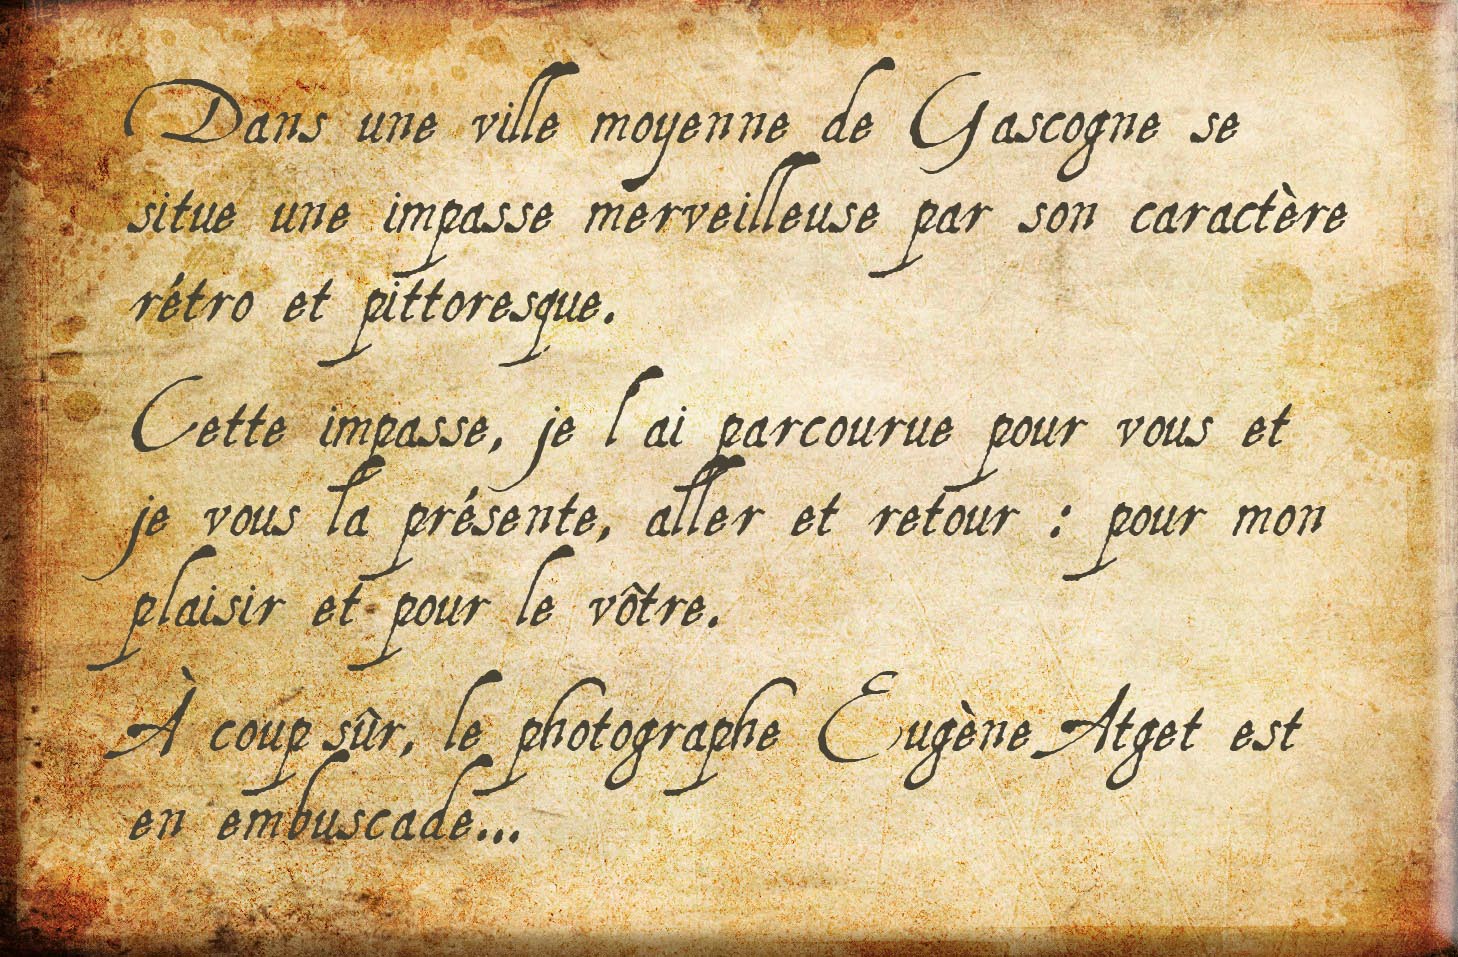 Dans une ville moyenne de Gascogne se
situe une impasse merveilleuse par son caractère
rétro et pittoresque.
Cette impasse, je l ai parcourue pour vous et
je vous la présente, aller et retour : pour mon
plaisir et pour le vôtre.
À coup sûr, le photographe Eugène Atget est
en embuscade...